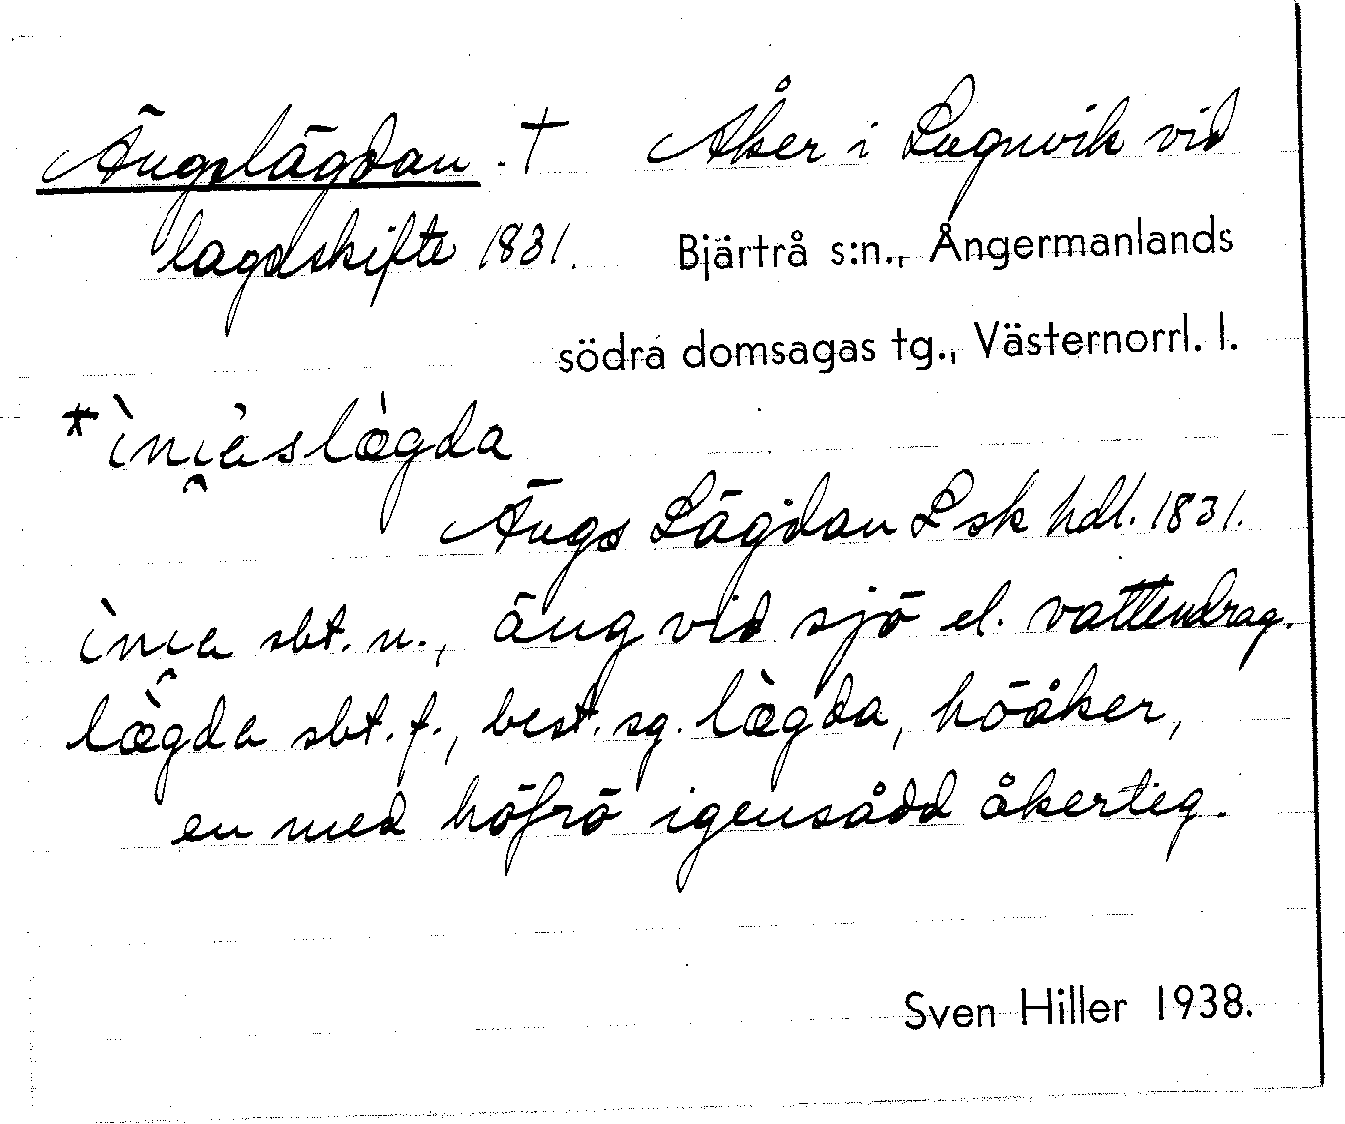 Ängslägdan. † Åker i Lugnvik vid
lagaskifte 1831. Bjärtrå s:n., Ångermanlands
södra domsagas tg., Västernorrl. l.
Ängs Lägdan L sk hdl. 1831.
sbt. n., äng vid sjö el. vattendrag.
lægda sbt. f., best. sg. lægda, höåker,
en med höfrö igensådd åkerteg.
Sven Hiller 1938.